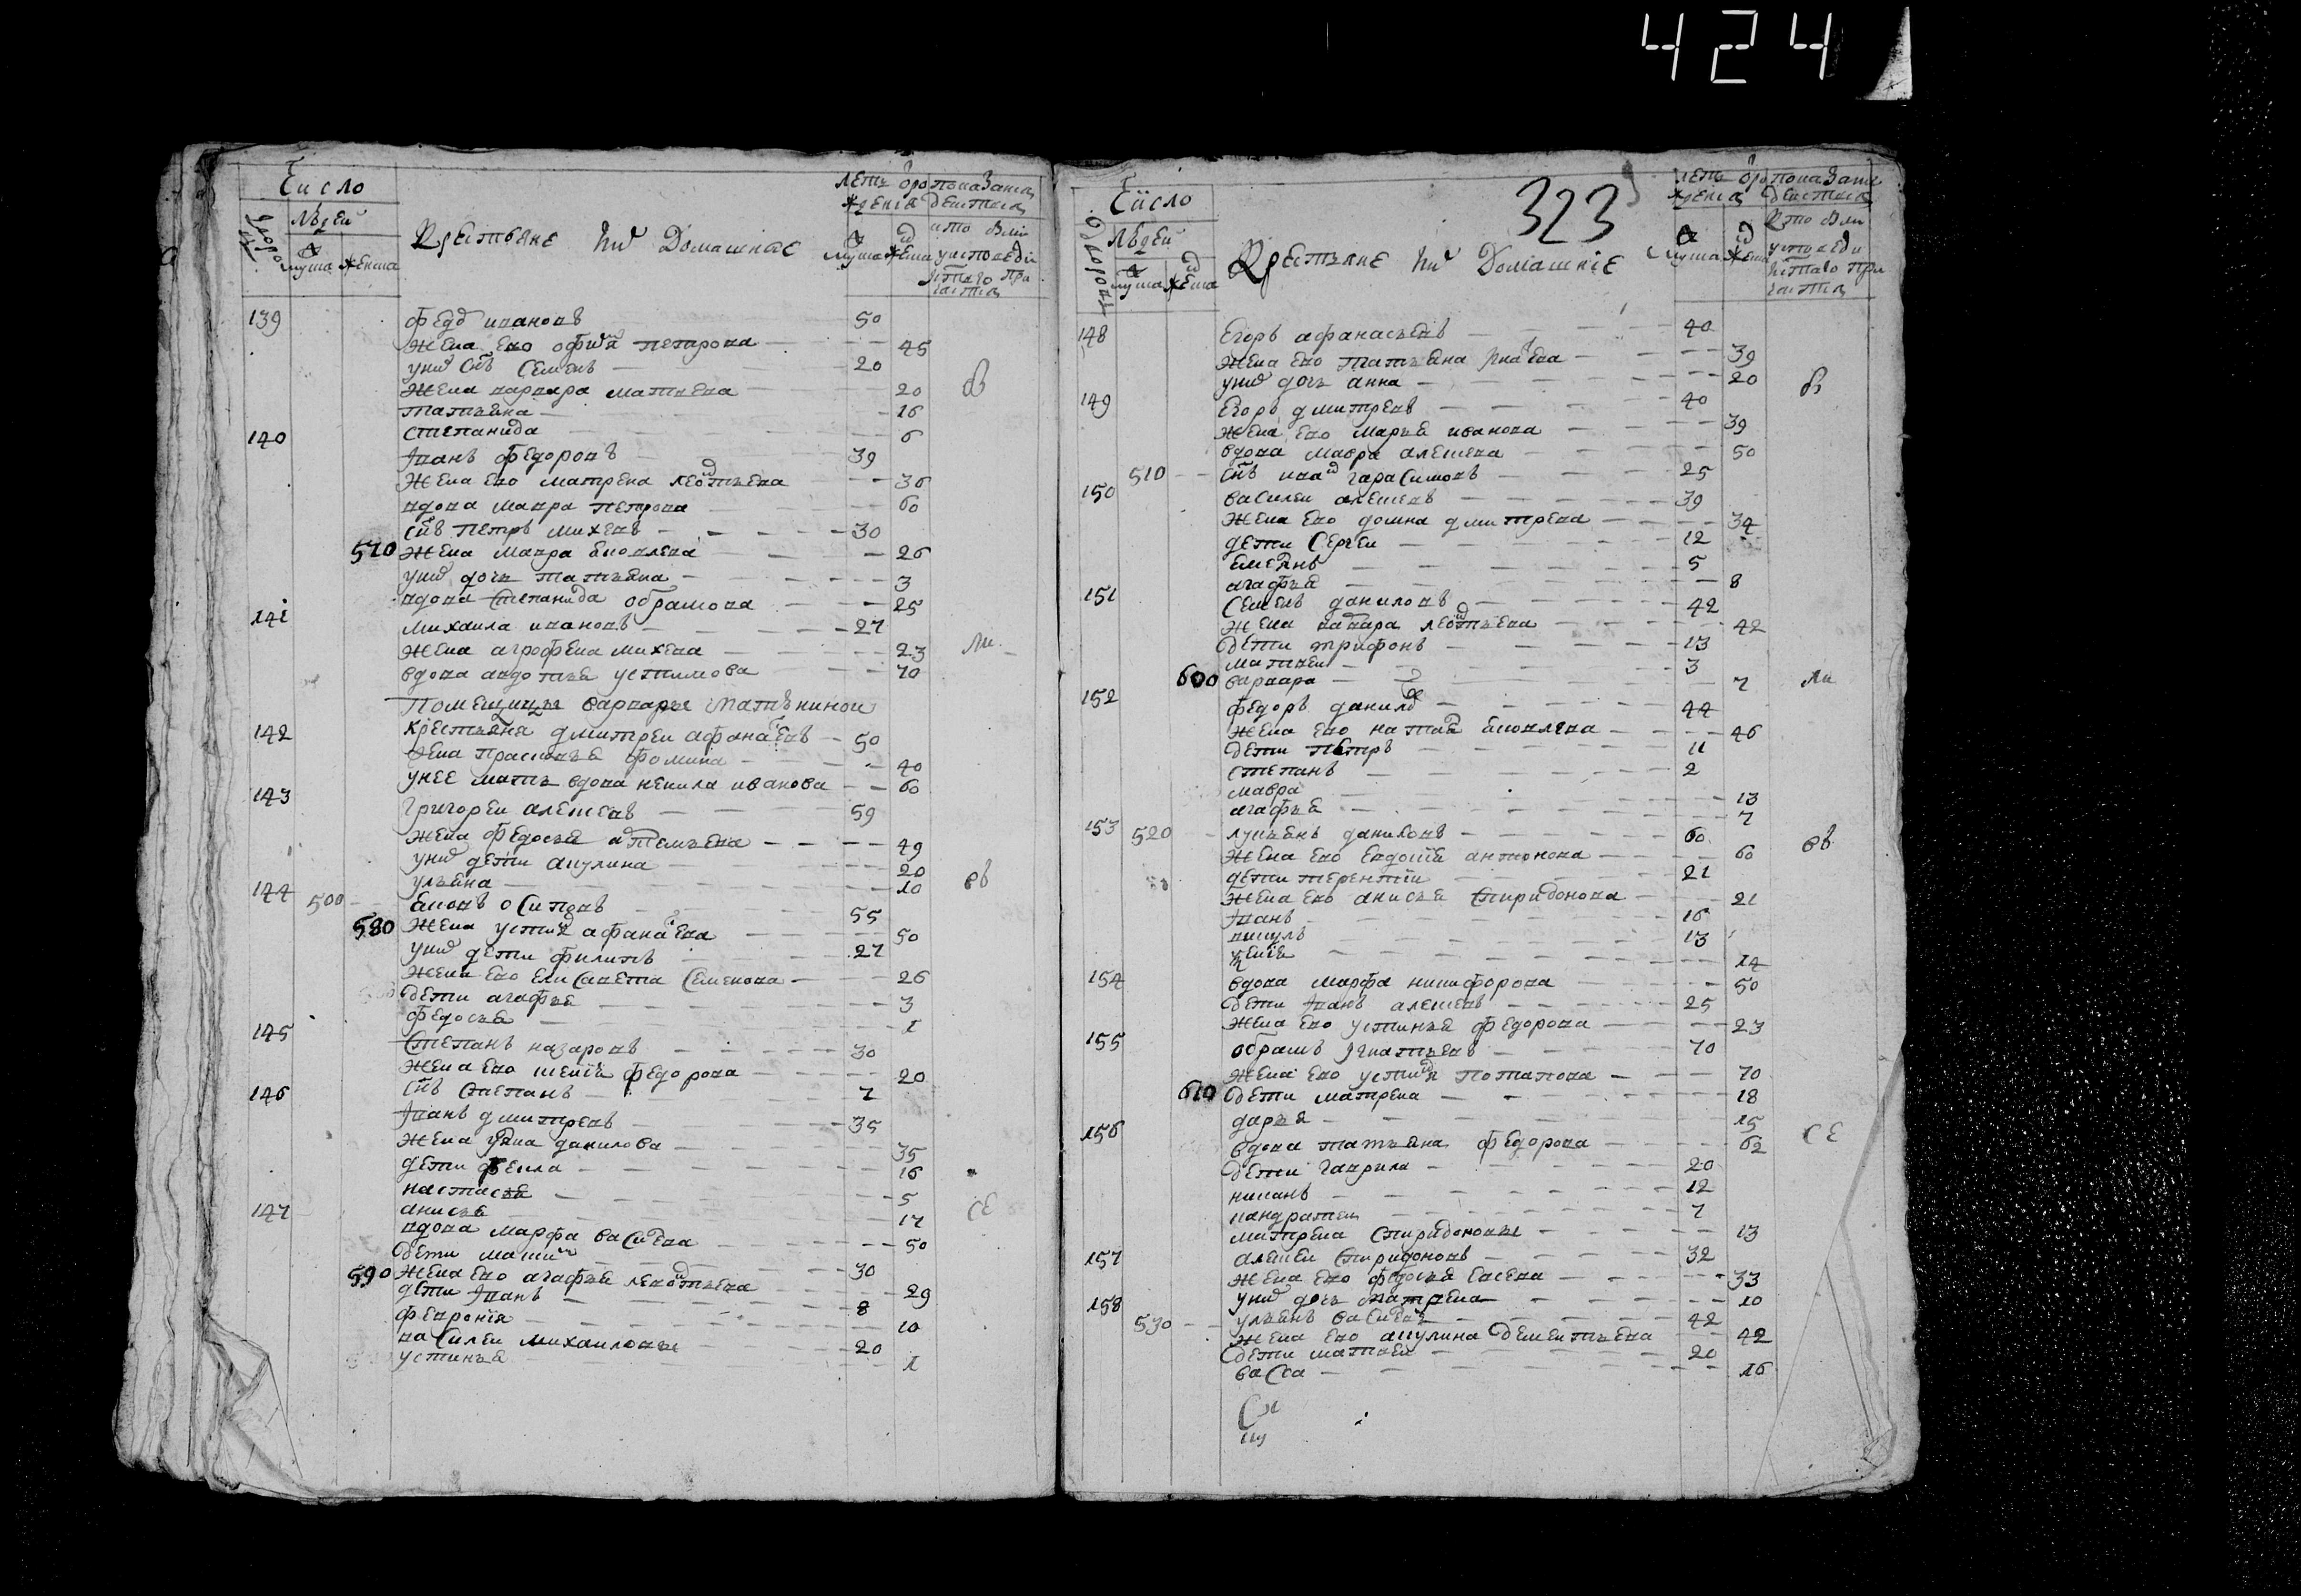 424
Число
людей
дворовъ
муска
женска
Крестьяне и ихъ Домашние
летъ отрождения
муска жеска
показание действа
кто былъ у исповеди и стаго причастия
139 федоръ ивановъ 50
жена ево офимья петрова 45
у нихъ снъ Семенъ 20
жена варвара матвеева 20
татьяна 16
степанида 6
140 иванъ федоровъ 39
жена ево матрена леонтьева 36
вдова мавра петрова 60
снъ петръ михеевъ 30
570 жена мавра яковлева 26
у нихъ дочь татьяна 3
вдова степанида обрамова 25
141 михаила ивановъ 27
жена агрофена михеева 23
вдова авдотья устимова 70
Помещицы варвары Матюниной
142 крестьяня дмитреи афанасевъ 50
жена прасковья фомина 40
у нее мать вдова ненила иванова 60
143 григореи алексеевъ 59
жена федосья артемьева 49
у нихъ дети акулина 20
ульяна 10
144 500 яковъ осиповъ 55
580 жена устинья афанасева 50
у нихъ дети филипъ 27
жена ево елисавета семенова 26
дети агафья 3
федосья 1
145 степанъ назаровъ 30
жена ево ксения федорова 20
снъ степанъ 7
146 иванъ дмитревъ 35
жена данилова 35
дети фекла 16
настасья 5
анисья 17
147 вдова марфа васильева 50
дети 30
590 жена ево агафья леонтьева 29
дети иванъ 8
феврония 10
василеи михаиловъ 20
устинья 1
323
Число
людей
дворовъ
муска
жеска
Крестьяне и ихъ Домашние
летъ отрождения
муска жеска
показание действа
кто былъ у исповеди и стаго причастия
148 егоръ афанасьевъ 40
жена ево татьяна 39
у нихъ дочь анна 20
149 егоръ дмитревъ 40
жена ево марья иванова 39
вдова мавра алексеева 50
510 снъ иванъ гарасимовъ 25
150 василеи алексеевъ 39
жена ево домна дмитрева 34
дети сергеи 12
емелянъ 5
агафья 8
151 семенъ даниловъ 42
жена варвара леонтьева 42
дети трифонъ 13
матвеи 3
600 варвара 7
152 федоръ даниловъ 44
жена ево яковлева 46
дети петръ 11
степанъ 2
мавра 13
агафья 7
153 520 лукьянъ даниловъ 60
жена ево евдокия антонова 60
дети терентии 21
жена ево анисья спиридонова 21
иванъ 16
викулъ 13
ксения 14
154 вдова марфа никифорова 50
дети иванъ алексеевъ 25
жена ево устинья федорова 23
155 обрамъ игнатьевъ 70
жена ево устинья потапова 70
610 дети матрена 18
дарья 15
156 вдова татьяна федорова 62
дети гаврила 20
никанъ 12
кандратеи 7
матрена спиридоновы 13
157 алексеи спиридоновъ 32
жена ево федосья евсеева 33
у нихъ дочь матрена 10
158 530 ульянъ васильевъ 42
жена ево акулина дементьева 42
дети матвеи 20
васса 16